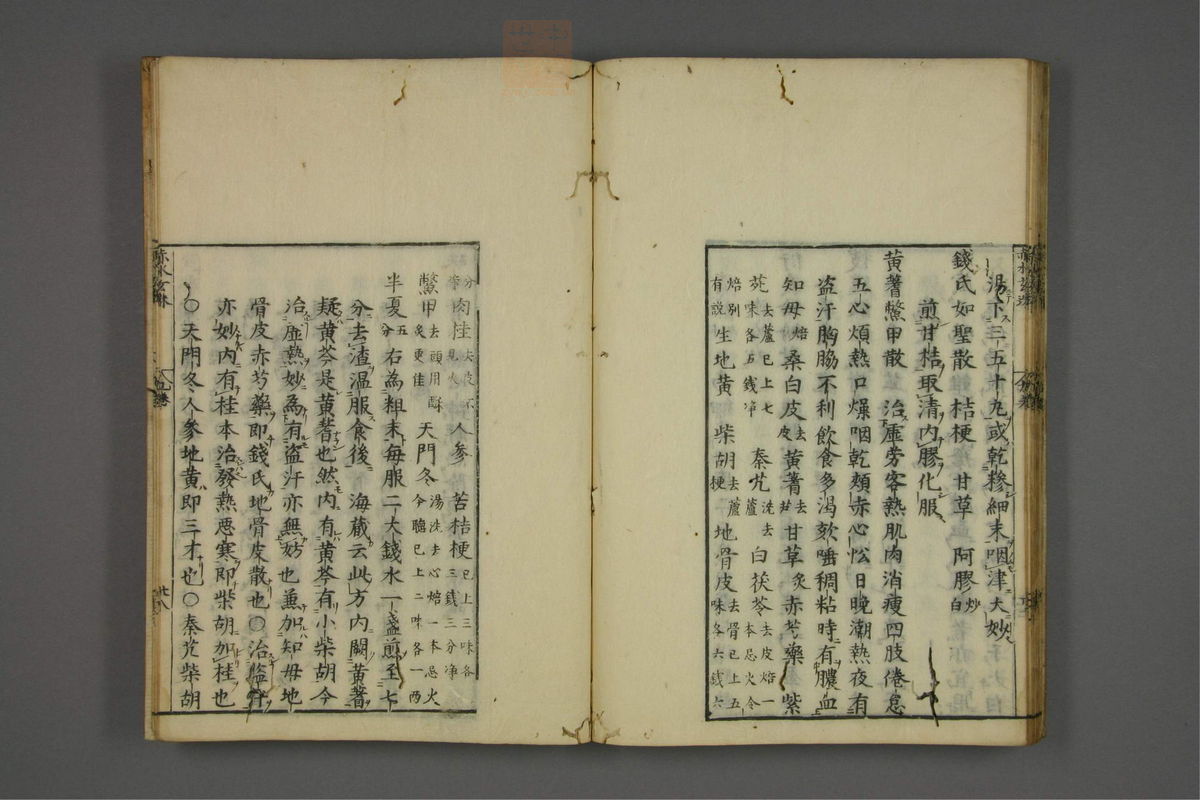 湯下三五十丸或乾糝細末咽津大妙
錢氏如聖散 桔梗 甘草 阿膠炒白
煎甘桔取清内膠化服
黄蓍鱉甲散 治虚労客熱肌肉消痩四肢倦怠
五心煩熱口燥咽乾頬赤心忪日晚潮熱夜有
盗汗胸脇不利飲食多渴欬唾稠粘時有膿血
知母焙桑白皮去皮黄蓍去甘草炙赤芍藥 紫
菀去蘆已上七味各五錢净 秦艽洗去蘆 白茯苓去皮焙一本忌火令
焙别有説生地黄 柴胡去蘆梗 地骨皮去骨已上五味各六錢六
分肉桂去皮不見火人參 苦桔梗已上三味各三錢三分净
鱉甲去頭用酥炙更佳 天門冬湯洗去心焙一本忌火今聽已上二味各一两
半夏五分右為粗末每服二大錢水一盞煎至七
分去渣温服食後 海蔵云此方内闕黄蓍
疑黄芩是黄蓍也然内有黄芩有小柴胡今
治虚熱妙為有盗汗亦無妨也兼加知母地
骨皮赤芍藥即錢氏地骨皮散也○治盗汗
亦妙内有桂本治發熱悪寒即柴胡加桂也
○天門冬人參地黄即三才也○秦艽柴胡
赤水玄珠
廿八